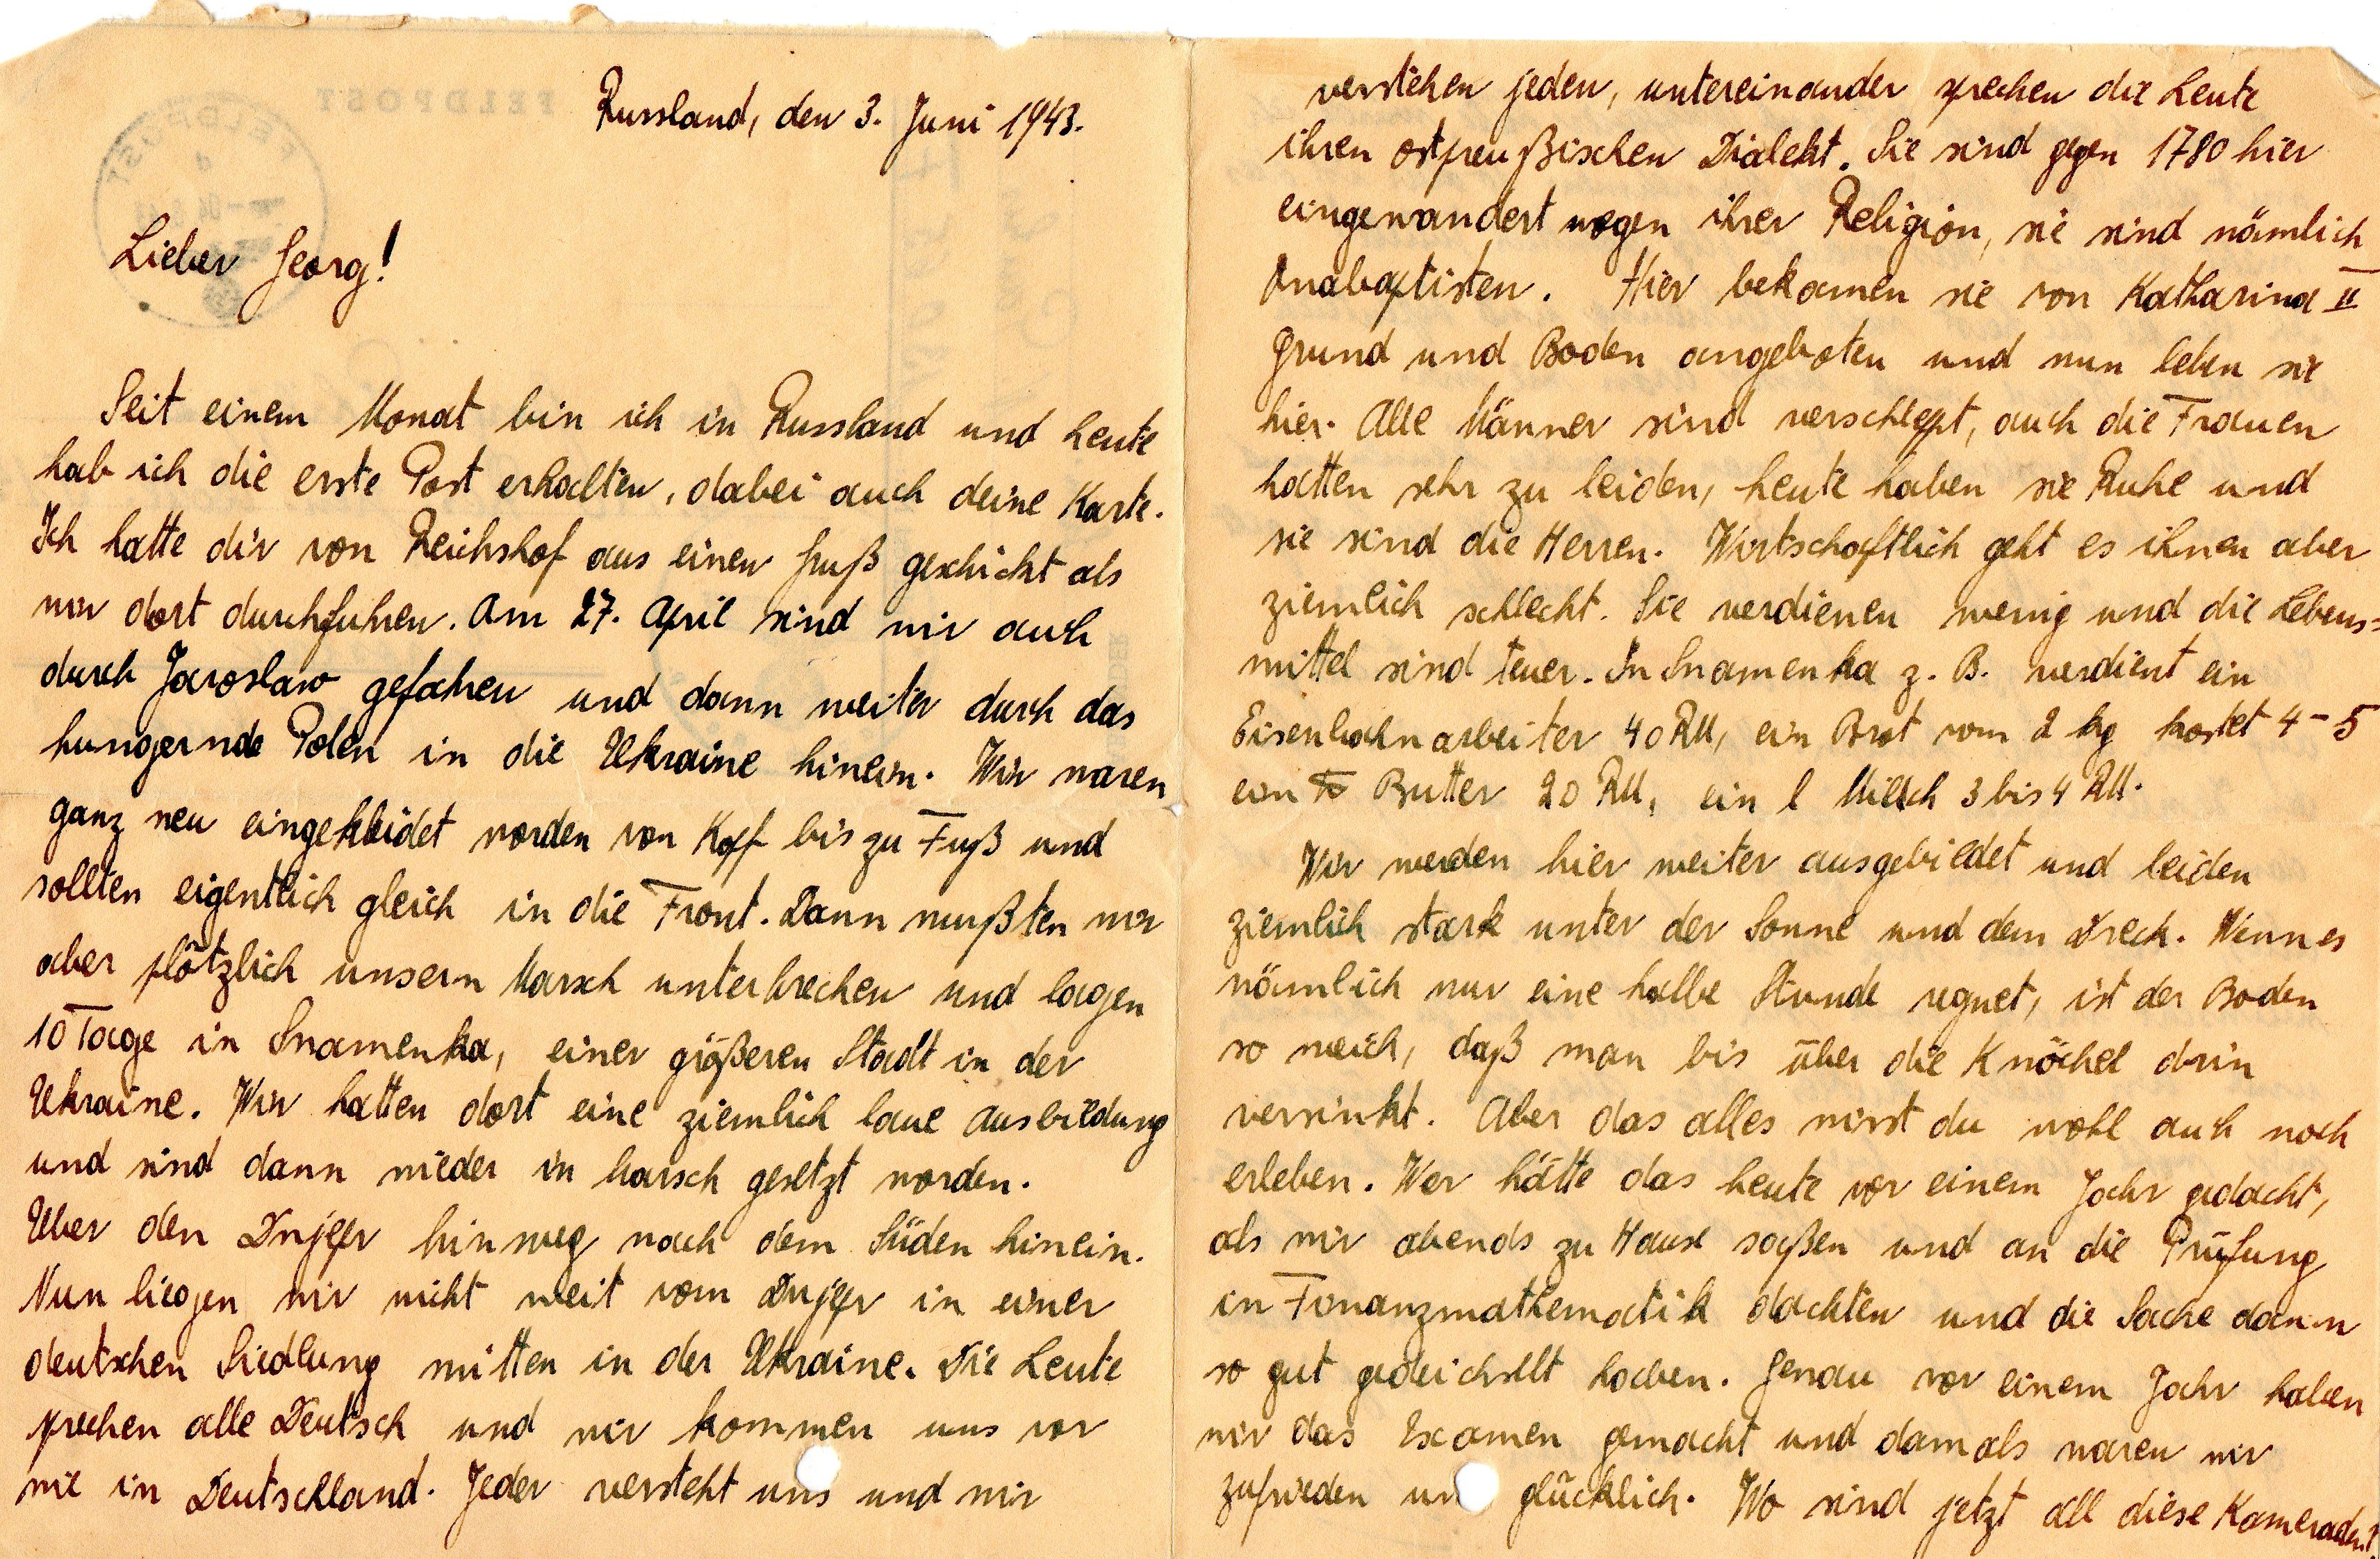 Russland, den 3. Juni 1943.
Lieber Georg!
Seit einem Monat bin ich in Russland und heute
hab ich die erste Post erhalten, dabei auch deine Karte.
Ich hatte dir von Reichshof aus einen Gruß geschickt als
wir dort durchfuhren. Am 27. April sind wir auch
durch Jaroslaw gefahren und dann weiter durch das
hungernde Polen in die Ukraine hinein. Wir waren
ganz neu eingekleidet worden von Kopf bis zu Fuß und
sollten eigentlich gleich in die Front. Dann mußten wir
aber plötzlich unsern Marsch unterbrechen und lagen
10 Tage in Snamenka, einer größeren Stadt in der
Ukraine. Wir hatten dort eine ziemlich laue Ausbildung
und sind dann wieder in Marsch gesetzt worden.
Über den Dnjepr hinweg nach dem Süden hinein.
Nun liegen wir nicht weit vom Dnjepr in einer
deutschen Siedlung mitten in der Ukraine. Die Leute
sprechen alle Deutsch und wir kommen uns vor
wie in Deutschland. Jeder versteht uns und wir
verstehen jeden, untereinander sprechen die Leute
ihren ostpreußischen Dialekt. Sie sind gegen 1780 hier
eingewandert wegen ihrer Religion, sie sind nämlich
Anabaptisten. Hier bekamen sie von Katharina II
Grund und Boden angeboten und nun leben sie
hier. Alle Männer sind verschleppt, auch die Frauen
hatten sehr zu leiden, heute haben sie Ruhe und
sie sind die Herren. Wirtschaftlich geht es ihnen aber
ziemlich schlecht. Sie verdienen wenig und die Lebens=
mittel sind teuer. In Snamenka z. B. verdient ein
Eisenbahnarbeiter 40 RM, ein Brot vom 2 kg kostet 4-5
ein ℔ Butter 20 RM, ein l Milch 3 bis 4 RM.
Wir werden hier weiter ausgebildet und leiden
ziemlich stark unter der Sonne und dem Dreck. Wenn es
nämlich nur eine halbe Stunde regnet, ist der Boden
so weich, daß man bis über die Knöchel drin
versinkt. Aber das alles wirst du wohl auch noch
erleben. Wer hätte das heute vor einem Jahr gedacht,
als wir abends zu Hause saßen und an die Prüfung
in Finanzmathematik dachten und die Sache dann
so gut gedeichselt haben. Genau vor einem Jahr haben
wir das Examen gemacht und damals waren wir
zufrieden un glücklich. Wo sind jetzt all diese Kameraden?
FELDPOST